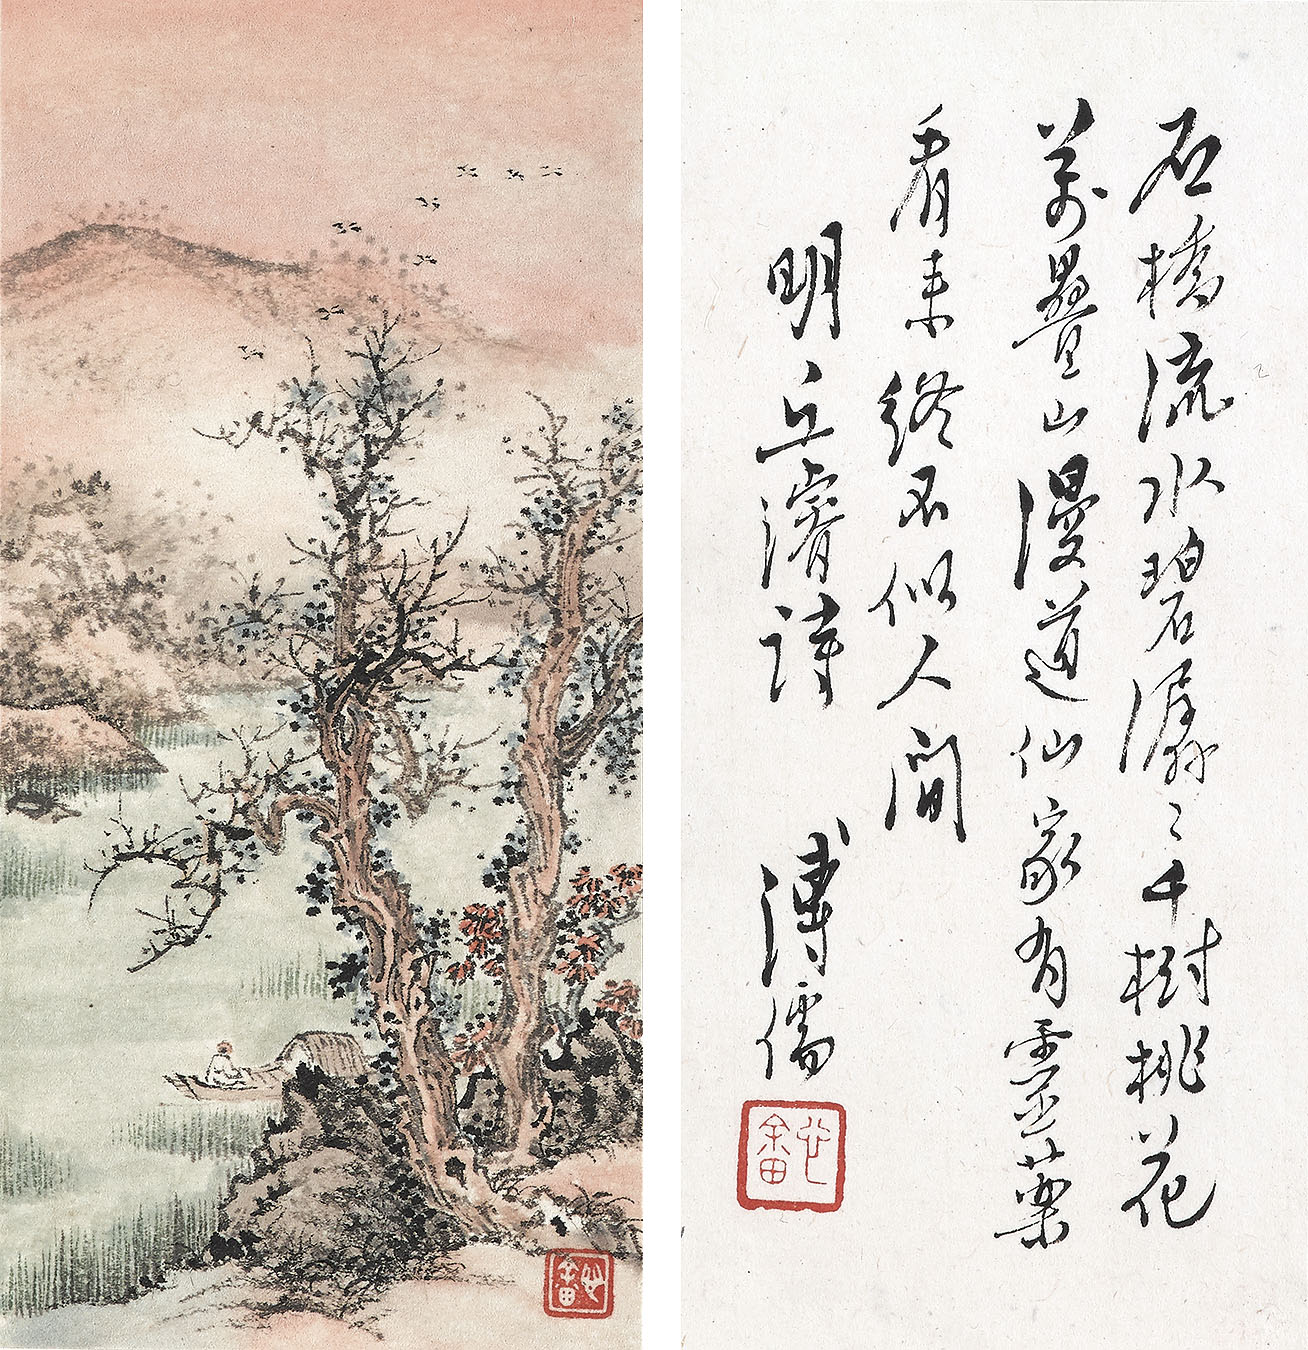 石橋流水碧潺〻千樹桃花
萬疊山漫道仙家有靈藥
看來終不似人間
明丘濬詩 溥儒
心畬
心畬